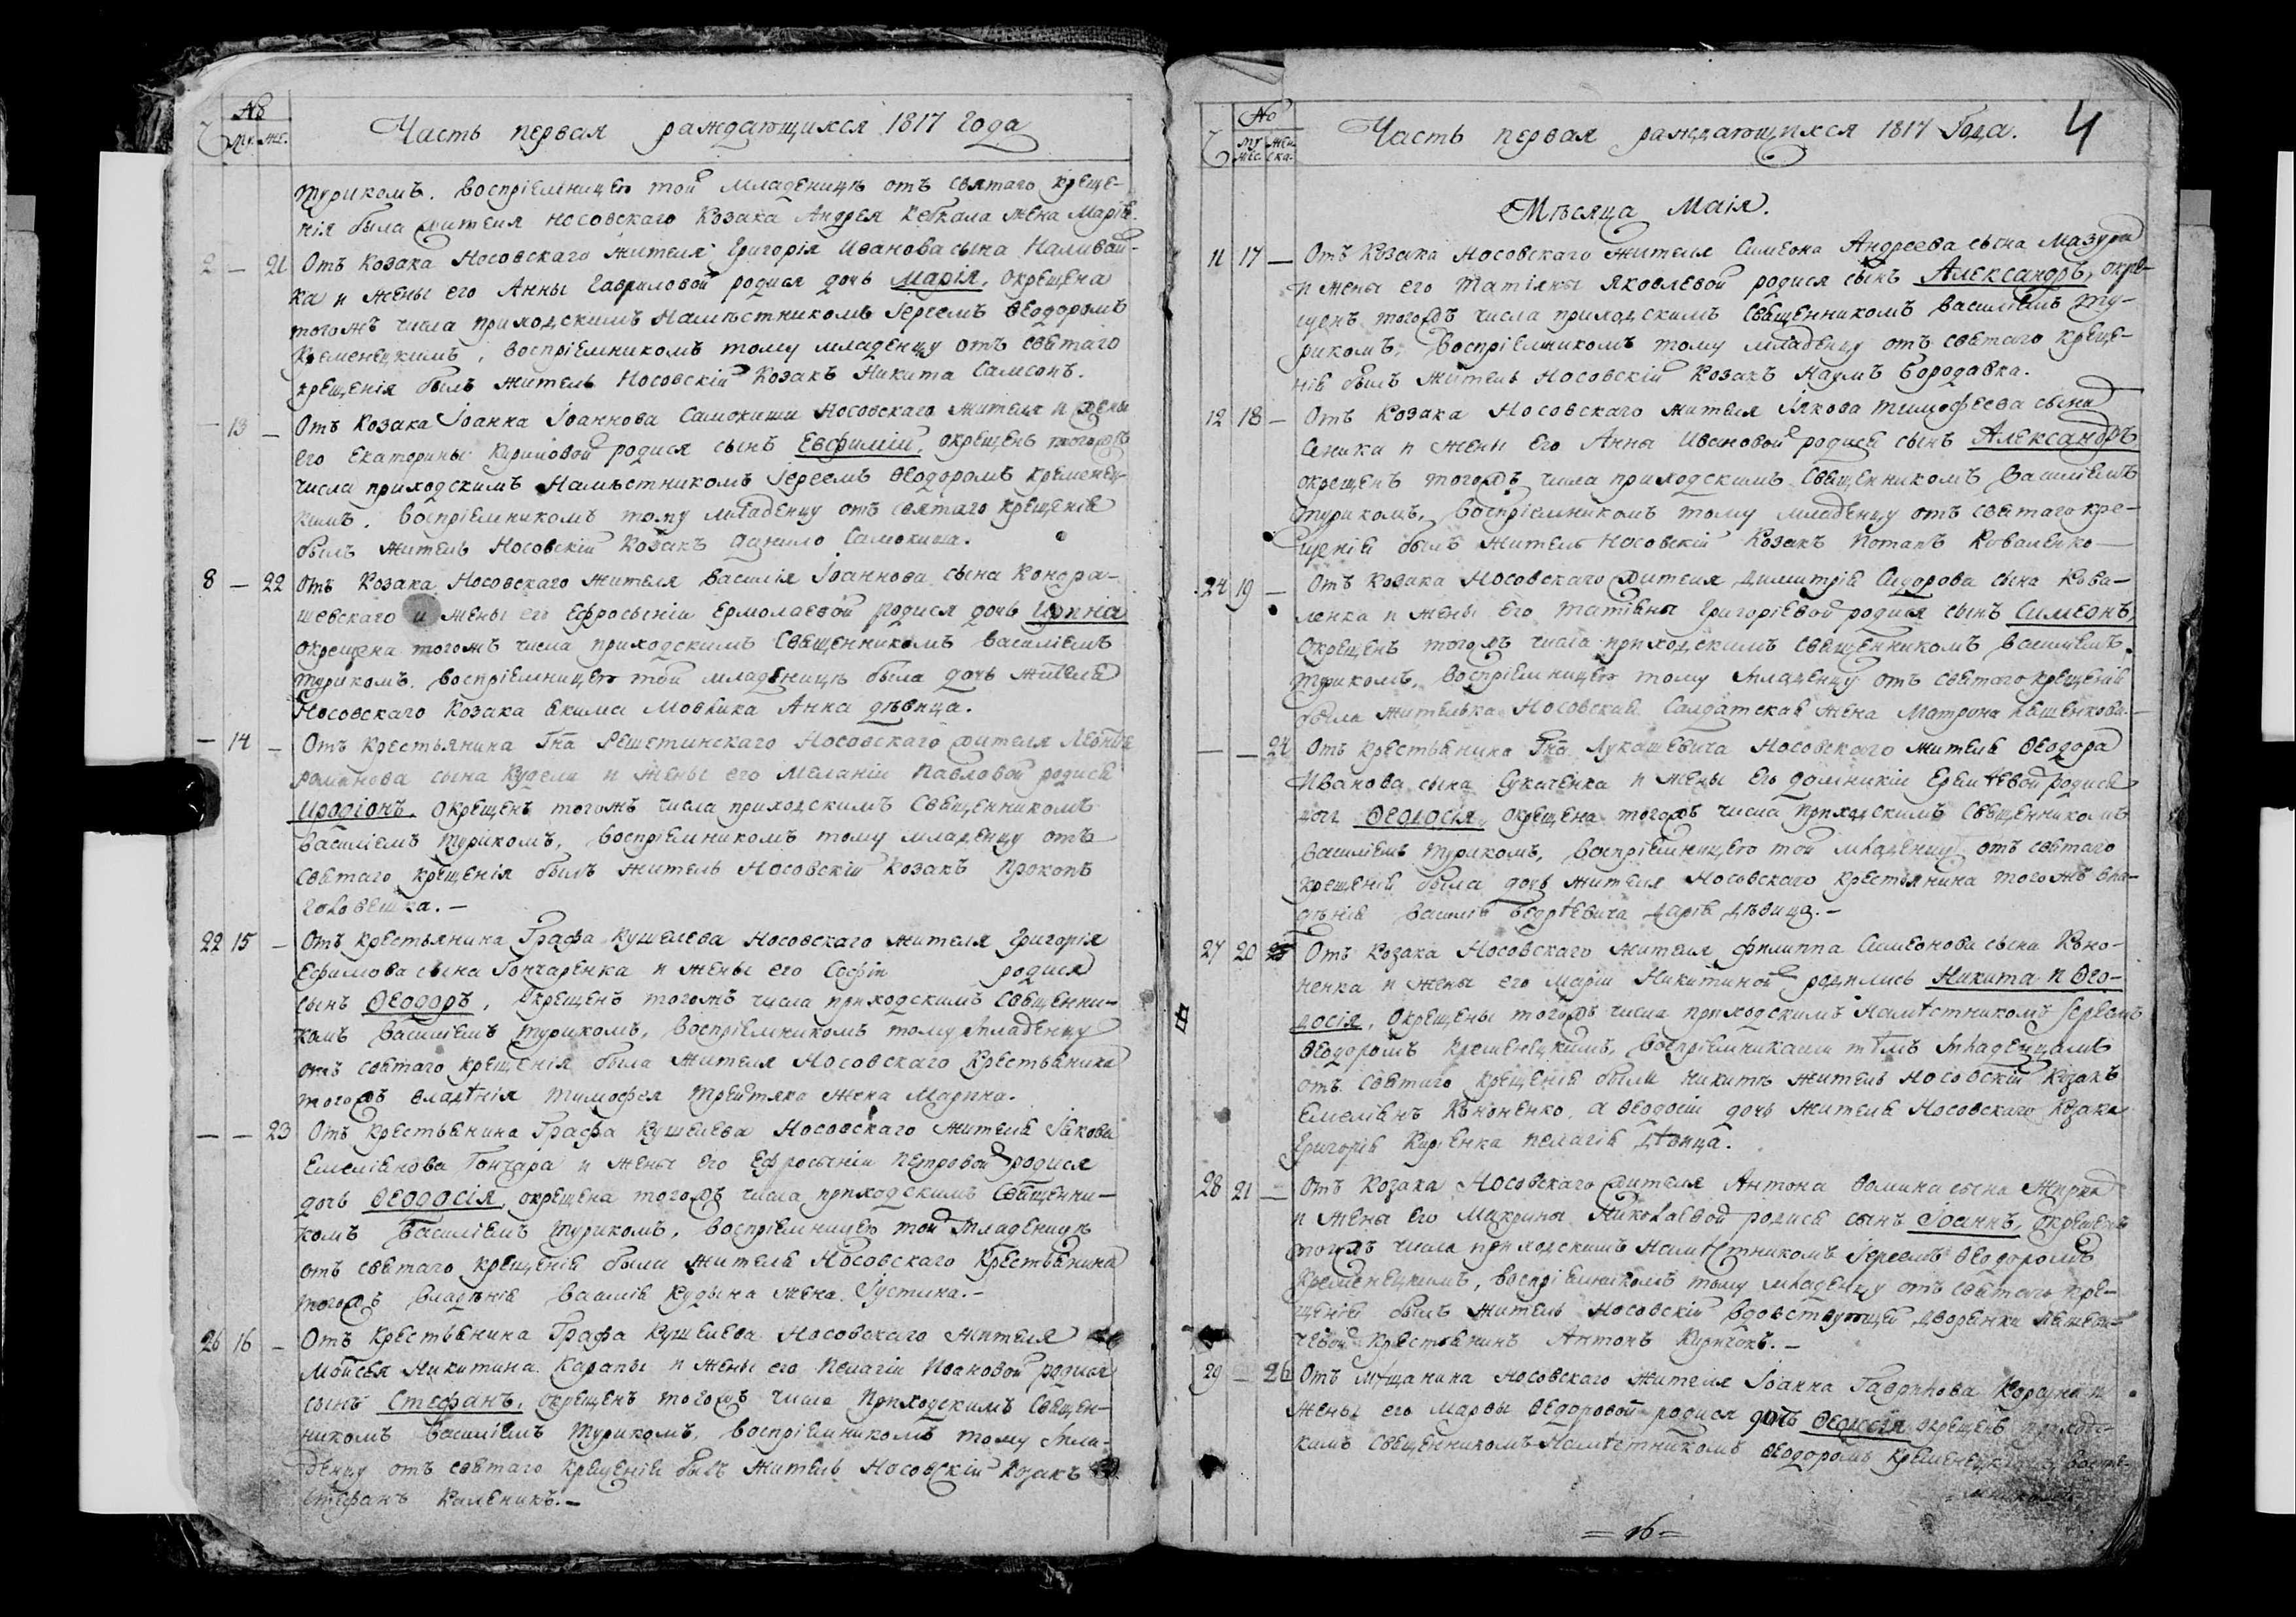 №
Ч му. же. Часть первая раждающихся 1817 года
Туриком. воспріемницею той младеницѣ отъ святаго креще-
нія была жителя Носовскаго Козака Андрея жена Марія.
2 — 21 Отъ Козака Носовскаго жителя Григорія Иванова сына Наливай-
ка и жены его Анны Гавриловой родися дочь Марія, окрещена
тогожъ числа приходскимъ Намѣстникомъ Іереемъ Ѳеодоромъ
Кременецкимъ, воспріемникомъ тому младенцу отъ святаго
крещенія былъ житель Носовскій Козакъ Никита Самсонъ.
— 13 — Отъ Козака Іоанна Іоаннова Самокиши Носовскаго жителя и жены
его Екатерины Кириловой родися сынъ Евфимій, окрещенъ тогожъ
числа приходскимъ Намѣстникомъ Іереемъ Ѳеодоромъ Кременец-
кимъ. воспріемникомъ тому младенцу отъ святаго крещенія
былъ житель Носовскій Козакъ Данило Самокиша.
8 — 22 Отъ Козака Носовскаго жителя Василія Іоаннова сына Кондра-
шевскаго и жены его Ефросыніи Ермолаевой родися дочь Ирина
окрещена тогожъ числа приходскимъ Священникомъ Василіемъ
Турикомъ. воспріемницею той младеницѣ была дочь жителя
Носовскаго Козака Якима Мовчика Анна дѣвица.
— 14 — Отъ крестьянина Гна Решетинскаго Носовскаго жителя Леонтія
романова сына Кудели и жены его Меланіи Павловой родися
Иродіонъ. Окрещенъ тогожъ числа приходскимъ Священникомъ
Василіемъ Турикомъ, воспріемникомъ тому младенцу отъ
святаго крещенія былъ житель Носовскій Козакъ Прокопъ
Головешка. —
22 15 — Отъ крестьянина Графа Кушелева Носовскаго жителя Григорія
Ефимова сына Гончаренка и жены его Софіи родися
сынъ Ѳеодоръ, Окрещенъ тогожъ числа приходскимъ священни-
комъ Василіемъ Турикомъ, воспріемникомъ тому младенцу
отъ святаго крещенія была жителя Носовскаго Крестьянина
тогожъ владѣнія Тимофея Трейтяка жена Марина.
— — 23 Отъ крестьянина Графа Кушелева Носовскаго жителя Іакова
Емеліянова Гончара и жены его Ефросыніи Петровой родися
дочь Ѳеодосія, окрещена тогожъ числа приходскимъ Священни-
комъ Василіемъ Турикомъ, воспріемницею той младеницѣ
отъ святаго крещенія была жителя Носовскаго Крестьянина
тогожъ владѣнія Василія жена Іустина. —
26 16 — Отъ Крестьянина Графа Кушелева Носовскаго жителя
Мойсея Никитина Карапы и жены его Пелагіи Ивановой родися
сынъ Стефанъ, окрещенъ тогожъ числа Приходскимъ Священ-
никомъ Василіемъ Турикомъ, воспріемникомъ тому мла-
денцу отъ святаго крещенія былъ житель Носовскій Козакъ
Стефанъ Каленикъ. —
№
Ч му жес. жен ска. Часть первая раждающихся 1817 Года. 4
Мѣсяца Маія.
11 17 — Отъ Козака Носовскаго жителя Симеона Андреева сына Мазура
и жены его Татіяны Яковлевой родися сынъ Александръ, окре-
щенъ тогожъ числа приходскимъ Священникомъ Василіемъ Ту-
рикомъ, воспріемникомъ тому младенцу отъ святаго креще-
нія былъ житель Носовскій Козакъ Наумъ Бородавка.
12 18 — Отъ Козака Носовскаго жителя Іякова Тимофеева сына
Сеника и жены его Анны Ивановой родися сынъ Александръ
окрещенъ тогожъ числа приходскимъ Священникомъ Василіемъ
Турикомъ, воспріемникомъ тому младенцу отъ святаго кре-
щенія былъ житель Носовскій Козакъ Потапъ Коваленко —
24 19 — Отъ Козака Носовскаго жителя Димитрія Сидорова сына Кова-
ленка и жены его Татіяны Григоріевой родися сынъ Симеонъ,
окрещенъ тогожъ числа приходскимъ священникомъ Василіемъ
Турикомъ, воспріемницею тому младенцу отъ святаго крещенія
была жителька Носовская Салдатская жена Матрона
— — 24 Отъ крестьянина Гна Лукашевича Носовскаго жителя Ѳеодора
Иванова сына Сукаченка и жены его Домникіи Еремѣевой родися
дочь Ѳеодосія, окрещена тогожъ числа приходскимъ священникомъ
Василіемъ Турикомъ, воспріемницею той младеницѣ отъ святаго
крещенія была дочь жителя Носовскаго крестьянина тогожъ вла-
дѣнія Василія Дарія дѣвица. —
27 20 25 Отъ Козака Носовскаго жителя Филиппа Симеонова сына Коно-
ненка и жены его Маріи Никитиной родились Никита и Ѳео-
досія, Окрещены тогожъ числа приходскимъ Намѣстникомъ Іереемъ
Ѳеодоромъ Кременецкимъ, воспріемниками тѣмъ младенцамъ
отъ святаго крещенія были Никитѣ житель Носовскій Козакъ
Емеліянъ Кононенко, а Ѳеодосіи дочь жителя Носовскаго Козака
Григорія Пелагія дѣвица.
28 21 — Отъ Козака Носовскаго жителя Антона Ѳомина сына Жирка
и жены его Макрины Николаевой родися сынъ Іоаннъ, окрещенъ
тогожъ числа приходскимъ Намѣстникомъ Іереемъ Ѳеодоромъ
Кременецкимъ, воспріемникомъ тому младенцу отъ святаго кре-
щенія былъ житель Носовскій вдовствующей дворянки
Крестьянинъ Антонъ Киричокъ. —
29 — 26 Отъ Мѣщанина Носовскаго жителя Іоанна Гаврилова Корсуна и
жены его Марѳы Ѳедоровой родися дочь Ѳеодосія окрещенъ приходс-
кимъ Священникомъ Намѣстникомъ Ѳеодоромъ Кременецкимъ, воспріе-
мникомъ
= 16 =